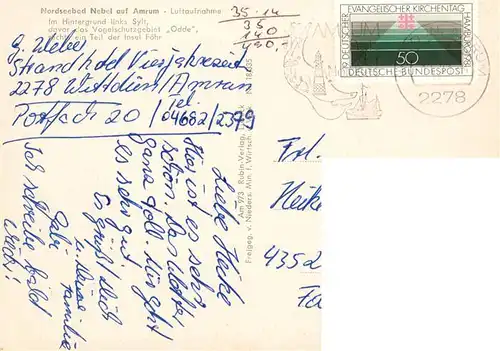 Nordseebad Nebel auf Amrum - Luftaufnahme
Im Hintergrund links Sylt,
davor das Vogelschutzgebiet "Odde",
rechts ein Teil der Insel Föhr
35-14
35
140
490,-
G. Weber
Strandhotel Vierjahreszeit
2278 Wittdün/Amrum
Tel.
Postfach 20/04682/2379
Liebe Heike
Hier ist es sehr
schön. Das Wetter
ganz toll. Mir geht
es sehr gut
Es grüßt Dich
Gabi
u. Familie
Ich schreibe bald
wieder!
Am 973 Rubin-Verlag,
Freigeg. v. Nieders. Min. f. Wirtsch.
19. DEUTSCHER EVANGELISCHER KIRCHENTAG HAMBURG 1981
50
DEUTSCHE BUNDESPOST
2278
Frl.
Heike
4352